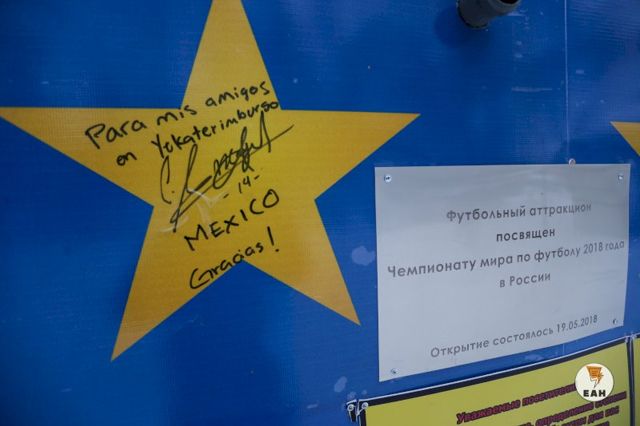 Para mis amigos
en Yekaterimburgo
-14-
MEXICO
Gracias!
Футбольный аттракцион
посвящен
Чемпионату мира по футболу 2018 года
в России
Открытие состоялось 19.05.2018
ЕАН
Уважаемые посетители